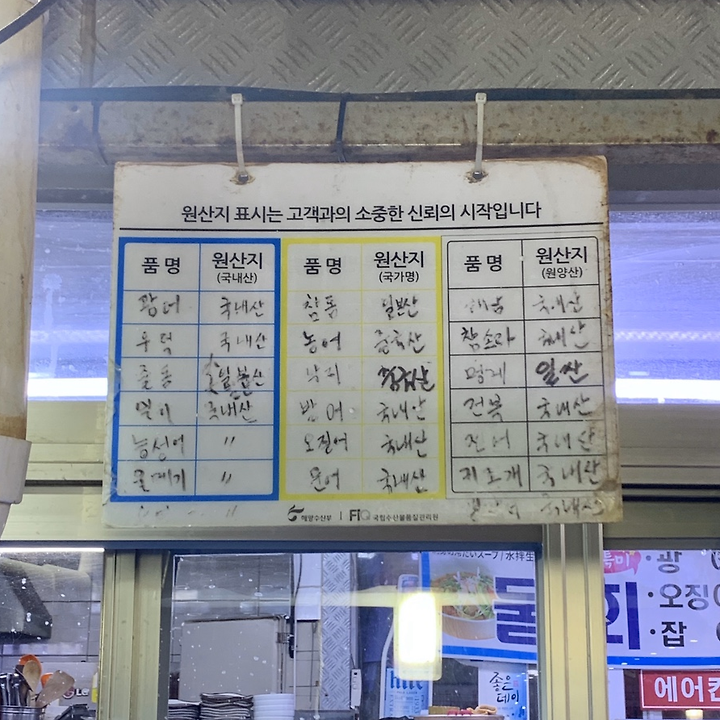 원산지 표시는 고객과의 소중한 신뢰의 시작입니다
품 명 원산지 (국내산) 품 명 원산지 (국가명) 품 명 원산지 (원양산)
광어 국내산 참돔 일본산 해삼 국내산
우럭 국내산 농어 중국산 참소라 국내산
줄돔 일본산 낙지 중국산 멍게 일산
밀치 국내산 방어 국내산 전복 국내산
능성어 〃 오징어 국내산 전어 국내산
쥐메기 〃 문어 국내산 키조개 국내산
〃 국내산
해양수산부 FiQ 국립수산물품질관리원
물회
특미 · 광
· 오징어
· 잡
좋은
데이
LG
에어컨